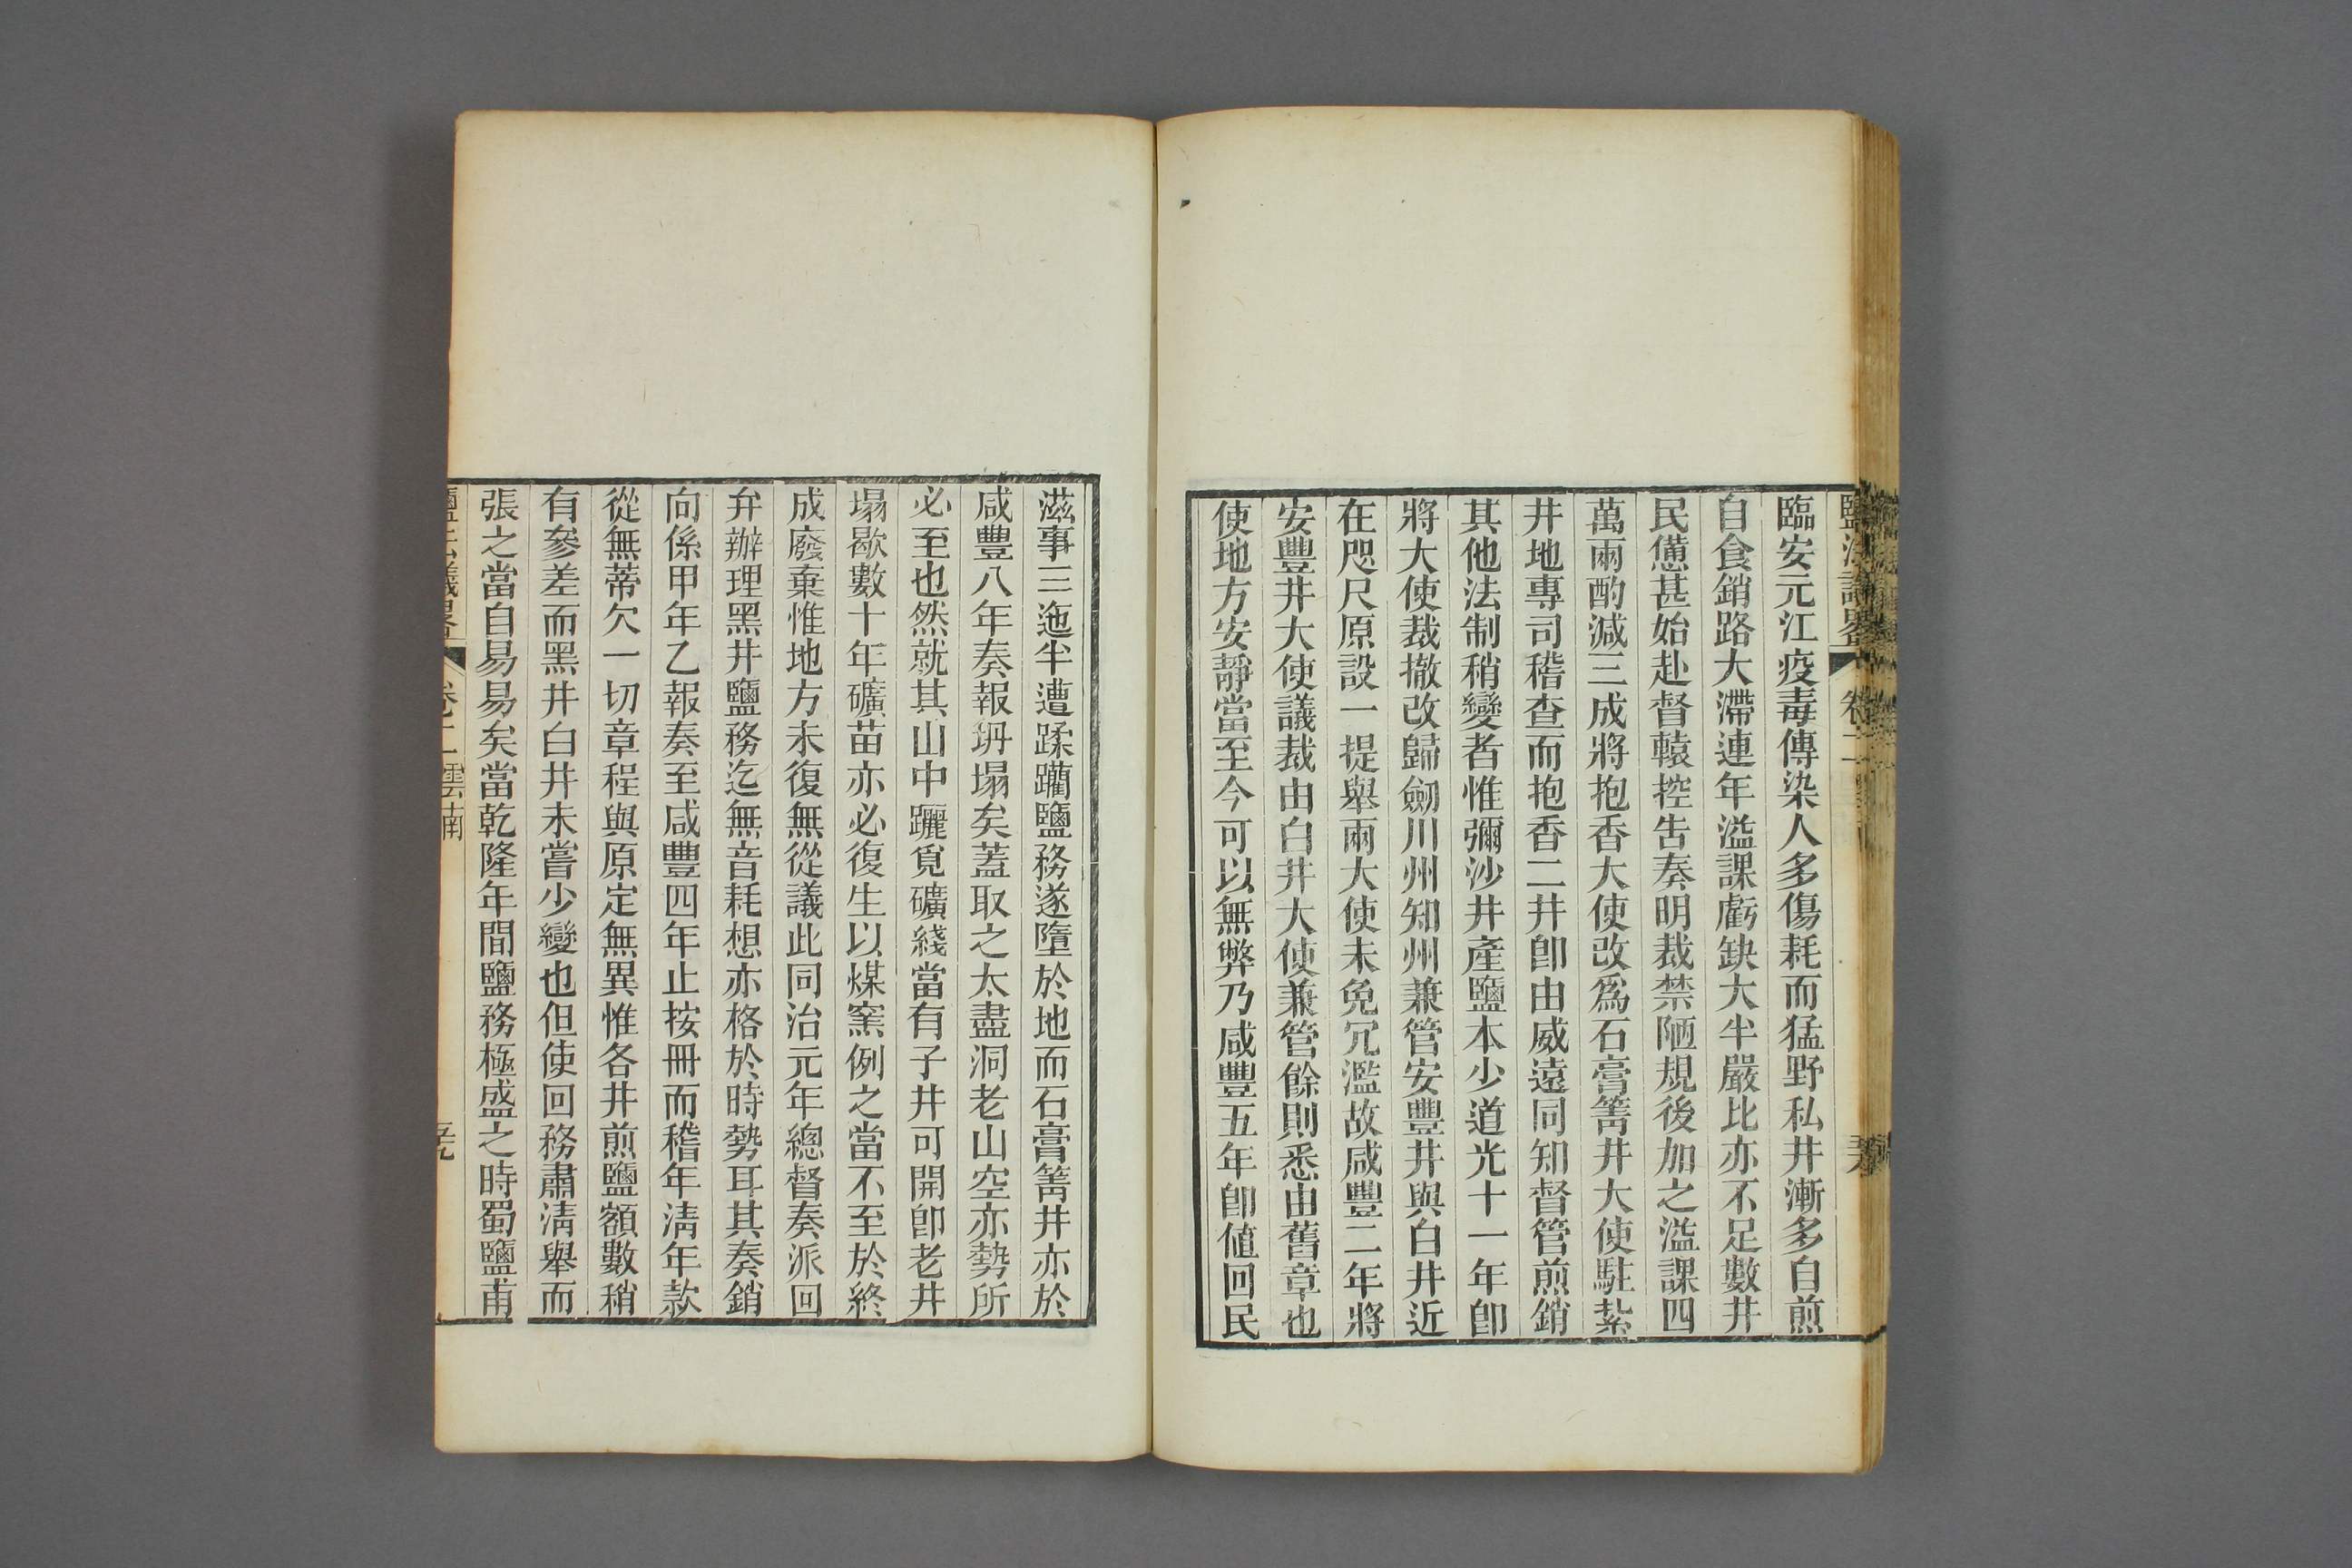 鹽法議畧 卷二
臨安元江疫毒傳染人多傷耗而猛野私井漸多自煎
自食銷路大滯連年溢課虧缺大半嚴比亦不足數井
民憊甚始赴督轅控吿奏明裁禁陋規後加之溢課四
萬兩酌減三成將抱香大使改爲石膏箐井大使駐紮
井地專司稽查而抱香二井卽由威遠同知督管煎銷
其他法制稍變者惟彌沙井產鹽本少道光十一年卽
將大使裁撤改歸劒川州知州兼管安豐井與白井近
在咫尺原設一提舉兩大使未免冗濫故咸豐二年將
安豐井大使議裁由白井大使兼管餘則悉由舊章也
使地方安靜當至今可以無弊乃咸豐五年卽値回民
滋事三迤半遭蹂躪鹽務遂墮於地而石膏箐井亦於
咸豐八年奏報坍塌矣蓋取之太盡洞老山空亦勢所
必至也然就其山中躧覓礦綫當有子井可開卽老井
塌歇數十年礦苗亦必復生以煤窯例之當不至於終
成廢棄惟地方未復無從議此同治元年總督奏派回
弁辦理黑井鹽務迄無音耗想亦格於時勢耳其奏銷
向係甲年乙報奏至咸豐四年止按冊而稽年淸年款
從無蒂欠一切章程與原定無異惟各井煎鹽額數稍
有參差而黑井白井未嘗少變也但使回務肅淸舉而
張之當自易易矣當乾隆年間鹽務極盛之時蜀鹽甫
鹽法議畧 卷二 雲南 五九